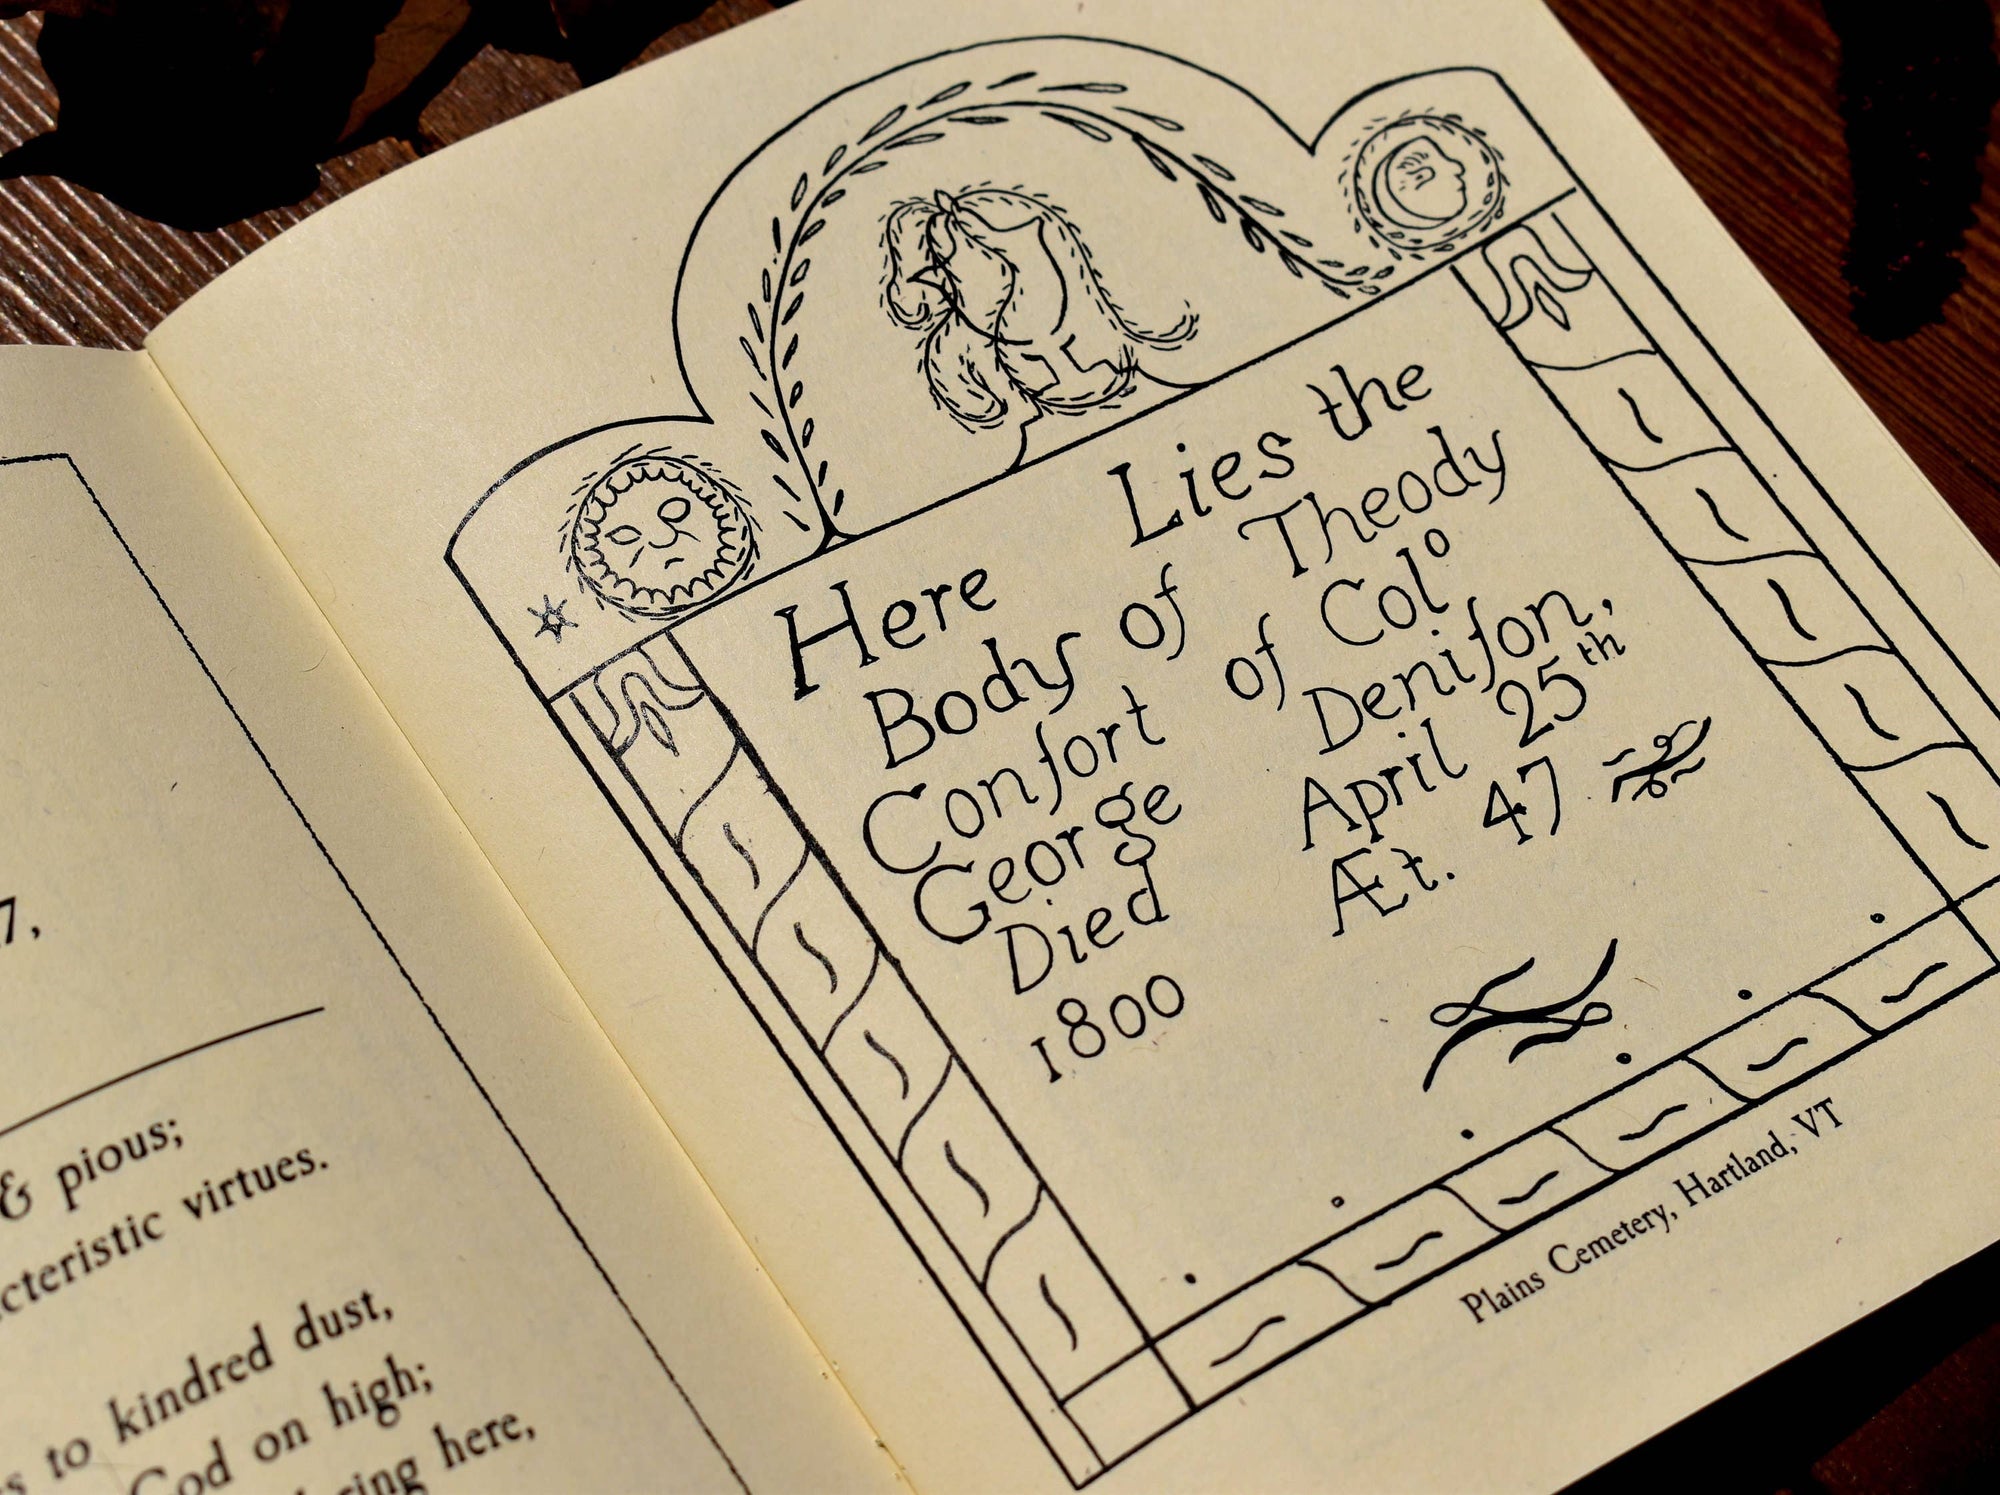 7,
& pious;
virtues.
to kindred dust,
God on high;
here,
Here Lies the
Body of Theody
Conſort of Colº
George Deniſon,
Died April 25th
1800 Æt. 47
Plains Cemetery, Hartland, VT